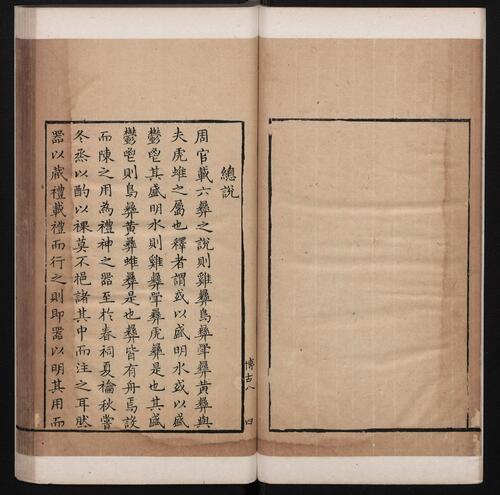 總說
周官載六彝之說則雞彝鳥彝斝彝黃彝與
夫虎蜼之屬也釋者謂或以盛明水或以盛
鬱鬯其盛明水則雞彝斝彝虎彝是也其盛
鬱鬯則鳥彝黃彝蜼彝是也彝皆有舟焉設
而陳之用為禮神之器至於春祠夏禴秋嘗
冬烝以酌以祼莫不挹諸其中而注之耳然
器以藏禮載禮而行之則即器以明其用而
博古八 四